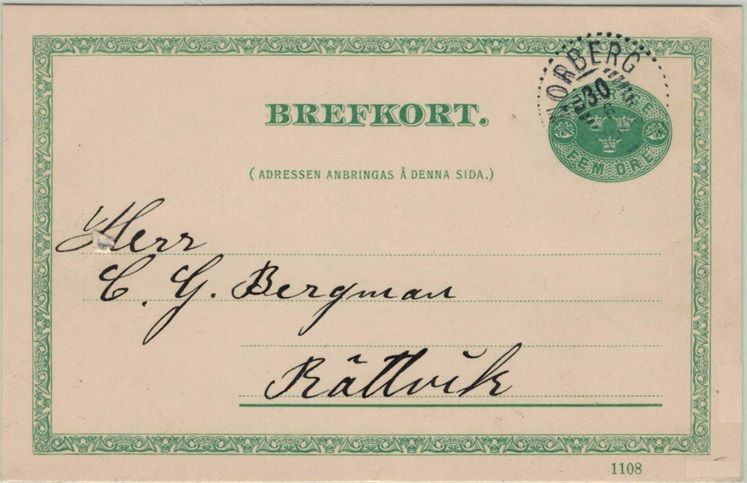 NORBERG
30
FEM ÖRE
BREFKORT.
( ADRESSEN ANBRINGAS Å DENNA SIDA.)
Herr
C. G. Bergman
Rättvik
1108